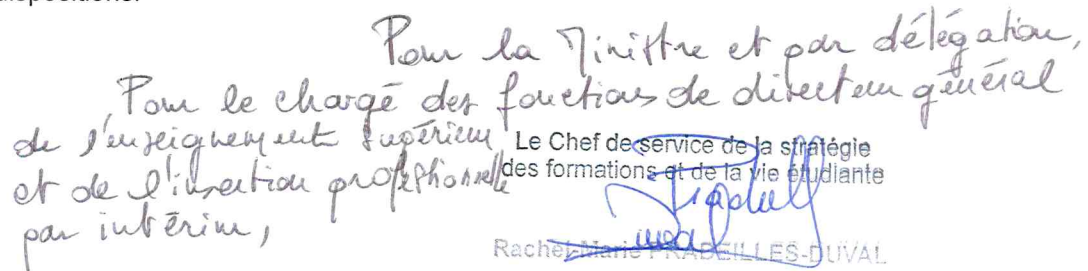 dispositions.
Pour la Ministre et par délégation,
Pour le chargé des fonctions de directeur général
de l'enseignement supérieur
et de l'insertion professionnelle
par intérim,
Le Chef de service de la stratégie
des formations et de la vie étudiante
Rachel-Marie PRADEILLES-DUVAL